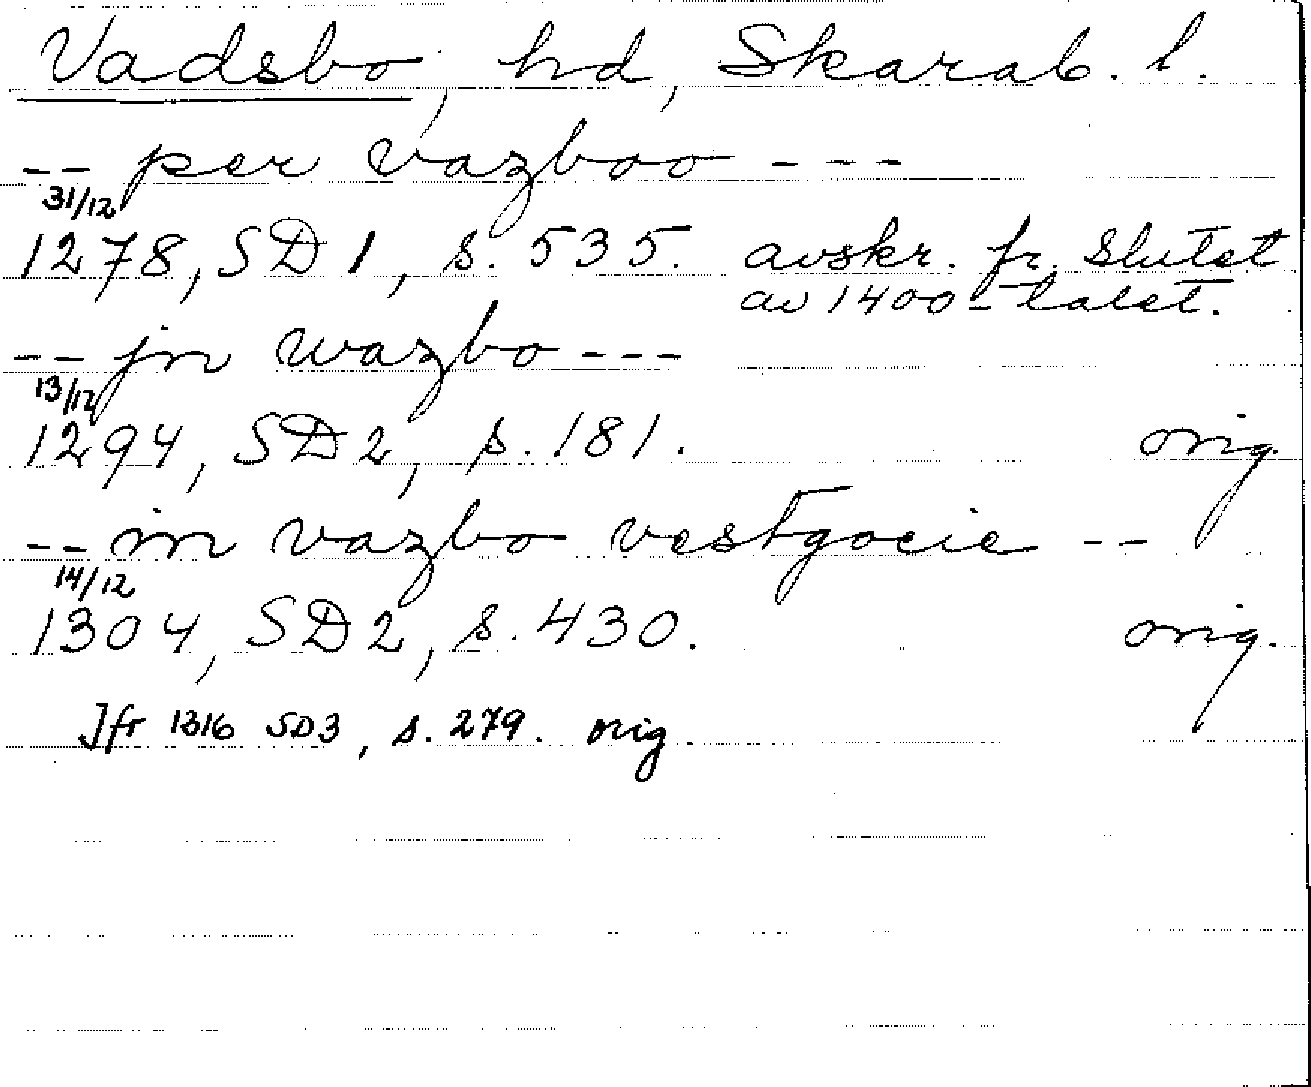 Vadsbo, hd, Skarab. l.
-- per vazboo ---
31/12
1278, SD 1, s. 535. avskr. fr. slutet
av 1400-talet.
-- jn wazbo ---
13/12
1294, SD2, s. 181. orig.
-- in vazbo vestgocie --
14/12
1304, SD2, s. 430. orig.
Jfr 1316 SD3, s. 279. orig.